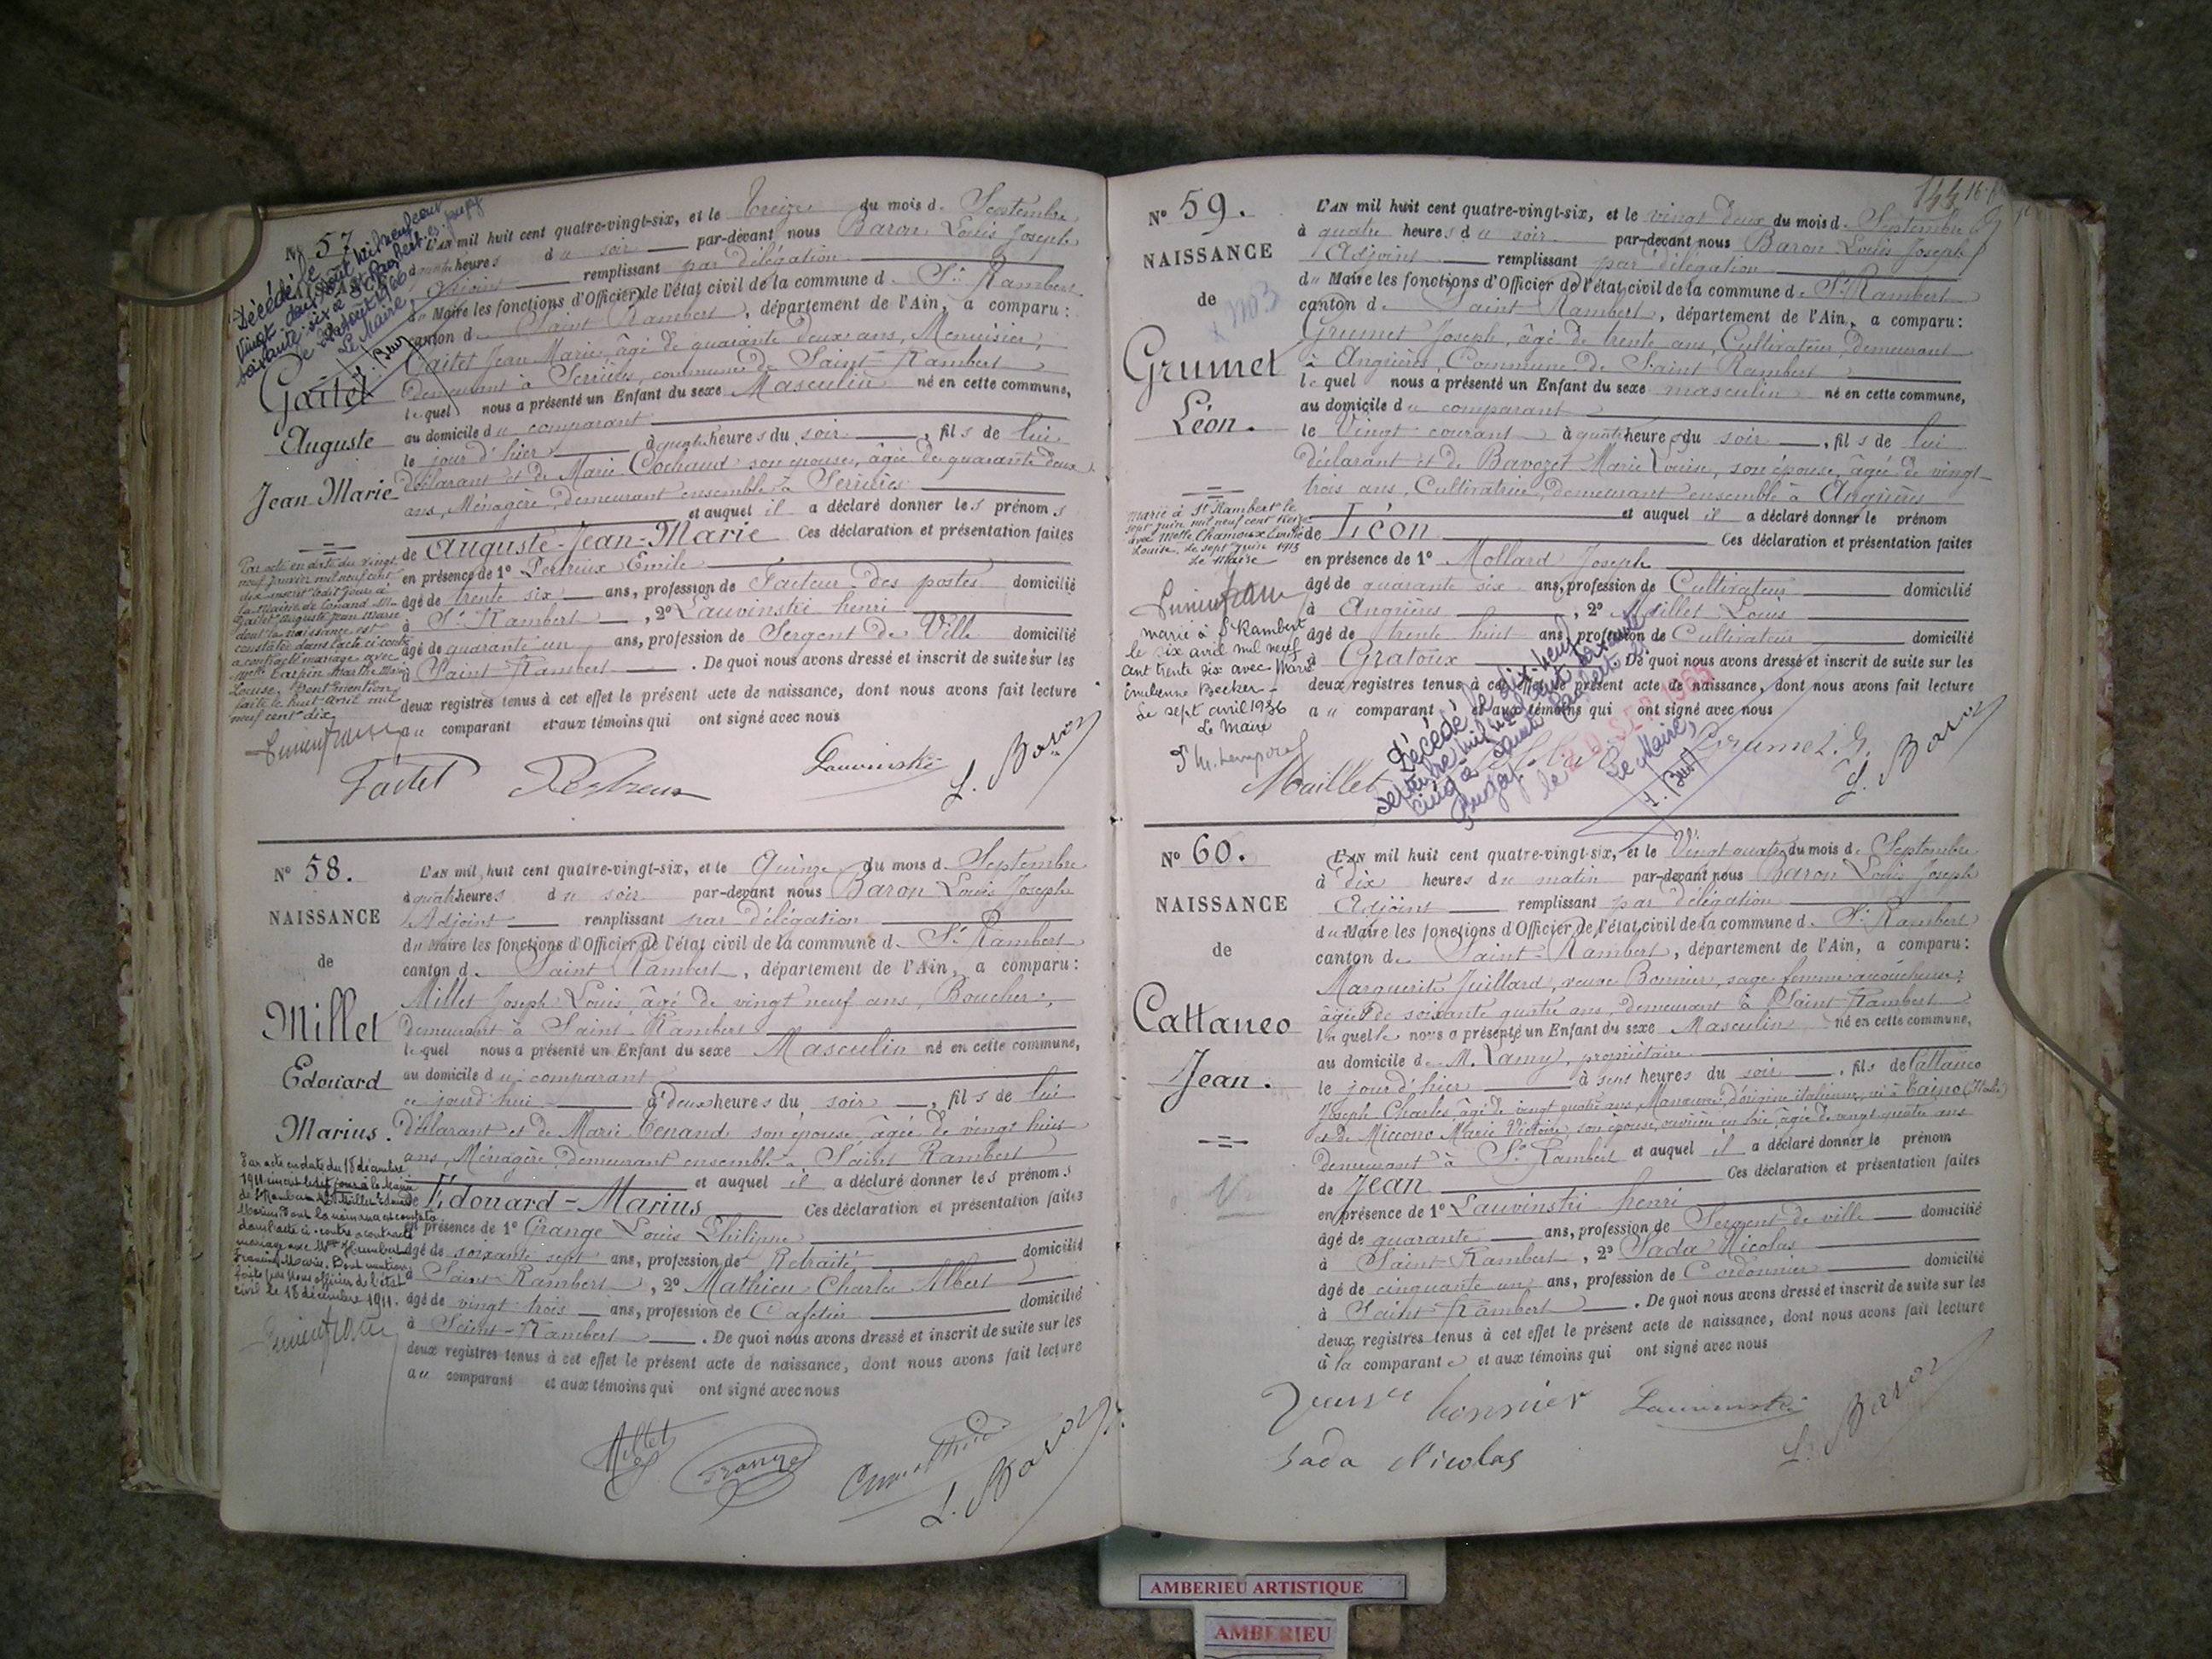 No 57.
Gaitet
Auguste
Jean Marie
L'AN mil huit cent quatre-vingt-six, et le treize du mois d. Septembre
heures du soir par-devant nous Baron Louis Joseph
Adjoint remplissant par délégation
du Maire les fonctions d'Officier de l'état civil de la commune d. St Rambert
canton d. Saint Rambert, département de l'Ain, a comparu:
Gaitet Jean Marie, âgé de quarante deux ans, Menuisier,
demeurant à Serrières, commune de Saint-Rambert
lequel nous a présenté un Enfant du sexe Masculin né en cette commune,
au domicile du comparant
le jour d'hier à heures du soir, fils de lui
déclarant et de Marie Cochaud son épouse, âgée de quarante deux
ans, Ménagère, demeurant ensemble à Serrières
et auquel il a déclaré donner les prénoms
de Auguste-Jean-Marie Ces déclaration et présentation faites
en présence de 1o Emile
âgé de trente six ans, profession de Facteur des postes domicilié
à St Rambert, 2o Lauvinski henri
âgé de quarante un ans, profession de Sergent de Ville domicilié
à Saint-Rambert. De quoi nous avons dressé et inscrit de suite sur les
deux registres tenus à cet effet le présent acte de naissance, dont nous avons fait lecture
au comparant et aux témoins qui ont signé avec nous
Par acte en date du vingt
neuf janvier mil neuf cent
dix inscrit ledit jour à
la Mairie de
Gaitet Auguste Jean Marie
dont la naissance est
constatée dans l'acte ci-contre
a contracté mariage avec
Louise, Dont mention
faite le huit avril mil
neuf cent dix
Gaitet Lauvinski L. Baron
No 58.
NAISSANCE
de
Millet
Edouard
Marius.
L'AN mil huit cent quatre-vingt-six, et le Quinze du mois d. Septembre
à quatre heures du soir par-devant nous Baron Louis Joseph
Adjoint remplissant par délégation
du Maire les fonctions d'Officier de l'état civil de la commune d. St Rambert
canton d. Saint Rambert, département de l'Ain, a comparu:
Millet Joseph Louis, âgé de vingt neuf ans, Boucher,
demeurant à Saint-Rambert
lequel nous a présenté un Enfant du sexe Masculin né en cette commune,
au domicile du comparant
ce jourd'hui à deux heures du soir, fils de lui
déclarant et de Marie Tenand son épouse, âgée de vingt huit
ans, Ménagère, demeurant ensemble à Saint Rambert
et auquel il a déclaré donner les prénoms
de Edouard-Marius Ces déclaration et présentation faites
en présence de 1o Grange Louis Philippe
âgé de soixante sept ans, profession de Retraité domicilié
à Saint-Rambert, 2o Mathieu Charles Albert
âgé de vingt trois ans, profession de Cafetier domicilié
à Saint-Rambert. De quoi nous avons dressé et inscrit de suite sur les
deux registres tenus à cet effet le présent acte de naissance, dont nous avons fait lecture
au comparant et aux témoins qui ont signé avec nous
Par acte en date du 18 décembre
1911 inscrit ledit jour à la Mairie
de St Rambert Millet Edouard
Marius dont la naissance est constatée
dans l'acte ci-contre a contracté
mariage avec Humbert
Marie. Dont mention
faite par nous officier de l'état
civil le 18 décembre 1911.
Millet Grange L. Baron
No 59.
NAISSANCE
de
Grumet
Léon.
L'AN mil huit cent quatre-vingt-six, et le vingt deux du mois d. Septembre
à quatre heures du soir par-devant nous Baron Louis Joseph
Adjoint remplissant par délégation
du Maire les fonctions d'Officier de l'état civil de la commune d. St Rambert
canton d. Saint Rambert, département de l'Ain, a comparu:
Grumet Joseph, âgé de trente ans, Cultivateur, demeurant
à Angrières, Commune de Saint Rambert
lequel nous a présenté un Enfant du sexe masculin né en cette commune,
au domicile du comparant
le Vingt courant à quatre heures du soir, fils de lui
déclarant et de Bavozet Marie Louise, son épouse, âgée de vingt
trois ans, Cultivatrice, demeurant ensemble à Angrières
et auquel il a déclaré donner le prénom
de Léon Ces déclaration et présentation faites
en présence de 1o Mollard Joseph
âgé de quarante six ans, profession de Cultivateur domicilié
à Angrières, 2o Maillet Louis
âgé de trente huit ans, profession de Cultivateur domicilié
à Gratoux. De quoi nous avons dressé et inscrit de suite sur les
deux registres tenus à cet effet le présent acte de naissance, dont nous avons fait lecture
au comparant et aux témoins qui ont signé avec nous
Marié à St Rambert le
sept juin mil neuf cent treize
avec Melle Chamoux Emilie
Louise. Le sept juin 1913
Le Maire
marié à St Rambert
le six avril mil neuf
cent trente six avec Marie
Emilienne Becker
Le sept avril 1936
Le Maire
Décédé le dix-neuf
septembre mil neuf cent soixante
cinq à Saint Rambert
Le Maire,
Maillet Grumet L. Baron
No 60.
NAISSANCE
de
Cattaneo
Jean.
L'AN mil huit cent quatre-vingt-six, et le Vingt quatre du mois d. Septembre
à dix heures du matin par-devant nous Baron Louis Joseph
Adjoint remplissant par délégation
du Maire les fonctions d'Officier de l'état civil de la commune d. St Rambert
canton d. Saint-Rambert, département de l'Ain, a comparu:
Marguerite Juillard, veuve Bonnier, sage femme accoucheuse,
âgée de soixante quatre ans, demeurant à Saint-Rambert
laquelle nous a présenté un Enfant du sexe Masculin né en cette commune,
au domicile d. M. Lamy, propriétaire
le jour d'hier à sept heures du soir, fils de Cattaneo
Joseph Charles âgé de vingt quatre ans, Manœuvre, d'origine italienne, né à Taino (Italie)
et de Miccono Marie Victoire, son épouse, ouvrière en soie, âgée de vingt quatre ans
demeurant à St Rambert et auquel il a déclaré donner le prénom
de Jean Ces déclaration et présentation faites
en présence de 1o Lauvinski henri
âgé de quarante ans, profession de Sergent de ville domicilié
à Saint-Rambert, 2o Sada Nicolas
âgé de cinquante un ans, profession de Cordonnier domicilié
à Saint-Rambert. De quoi nous avons dressé et inscrit de suite sur les
deux registres tenus à cet effet le présent acte de naissance, dont nous avons fait lecture
à la comparante et aux témoins qui ont signé avec nous
bonnier Lauvinski L. Baron
Sada Nicolas
AMBERIEU ARTISTIQUE
AMBERIEU